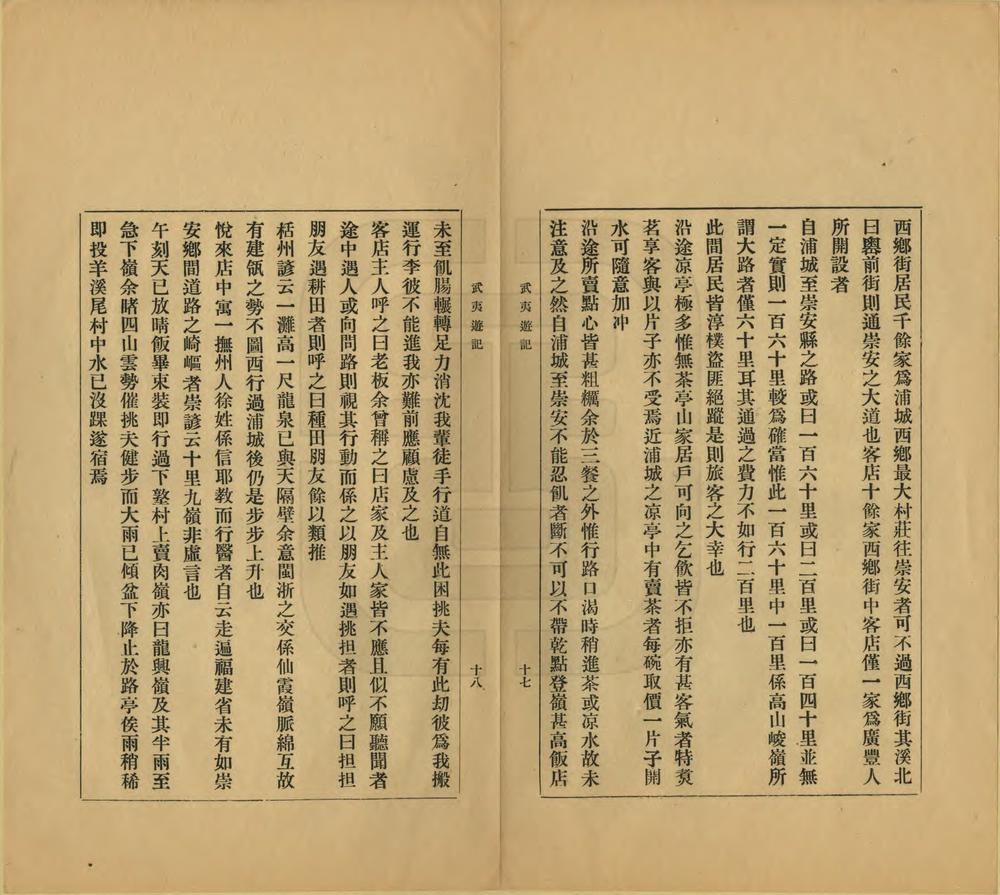 西鄉街居民千餘家爲浦城西鄉最大村莊往崇安者可不過西鄉街其溪北
曰轡前街則通崇安之大道也客店十餘家西鄉街中客店僅一家爲廣豐人
所開設者
自浦城至崇安縣之路或曰一百六十里或曰二百里或曰一百四十里並無
一定實則一百六十里較爲確當惟此一百六十里中一百里係高山峻嶺所
謂大路者僅六十里耳其通過之費力不如行二百里也
此間居民皆淳樸盜匪絕蹤是則旅客之大幸也
沿途凉亭極多惟無茶亭山家居戶可向之乞飲皆不拒亦有甚客氣者特烹
茗享客與以片子亦不受焉近浦城之凉亭中有賣茶者每碗取價一片子開
水可隨意加冲
沿途所賣點心皆甚粗糲余於三餐之外惟行路口渴時稍進茶或凉水故未
注意及之然自浦城至崇安不能忍飢者斷不可以不帶乾點登嶺甚高飯店
武夷遊記
十七
武夷遊記
十八
未至飢腸輾轉足力消沈我輩徒手行道自無此困挑夫每有此刧彼爲我搬
運行李彼不能進我亦難前應顧慮及之也
客店主人呼之曰老板余曾稱之曰店家及主人家皆不應且似不願聽聞者
途中遇人或向問路則視其行動而係之以朋友如遇挑担者則呼之曰担担
朋友遇耕田者則呼之曰種田朋友餘以類推
栝州諺云一灘高一尺龍泉已與天隔壁余意閩浙之交係仙霞嶺脈綿互故
有建瓴之勢不圖西行過浦城後仍是步步上升也
悅來店中寓一撫州人徐姓係信耶教而行醫者自云走遍福建省未有如崇
安鄉間道路之崎嶇者崇諺云十里九嶺非虛言也
午刻天已放晴飯畢束裝即行過下墪村上賣肉嶺亦曰龍興嶺及其半雨至
急下嶺余睹四山雲勢催挑夫健步而大雨已傾盆下降止於路亭俟雨稍稀
即投羊溪尾村中水已沒踝遂宿焉